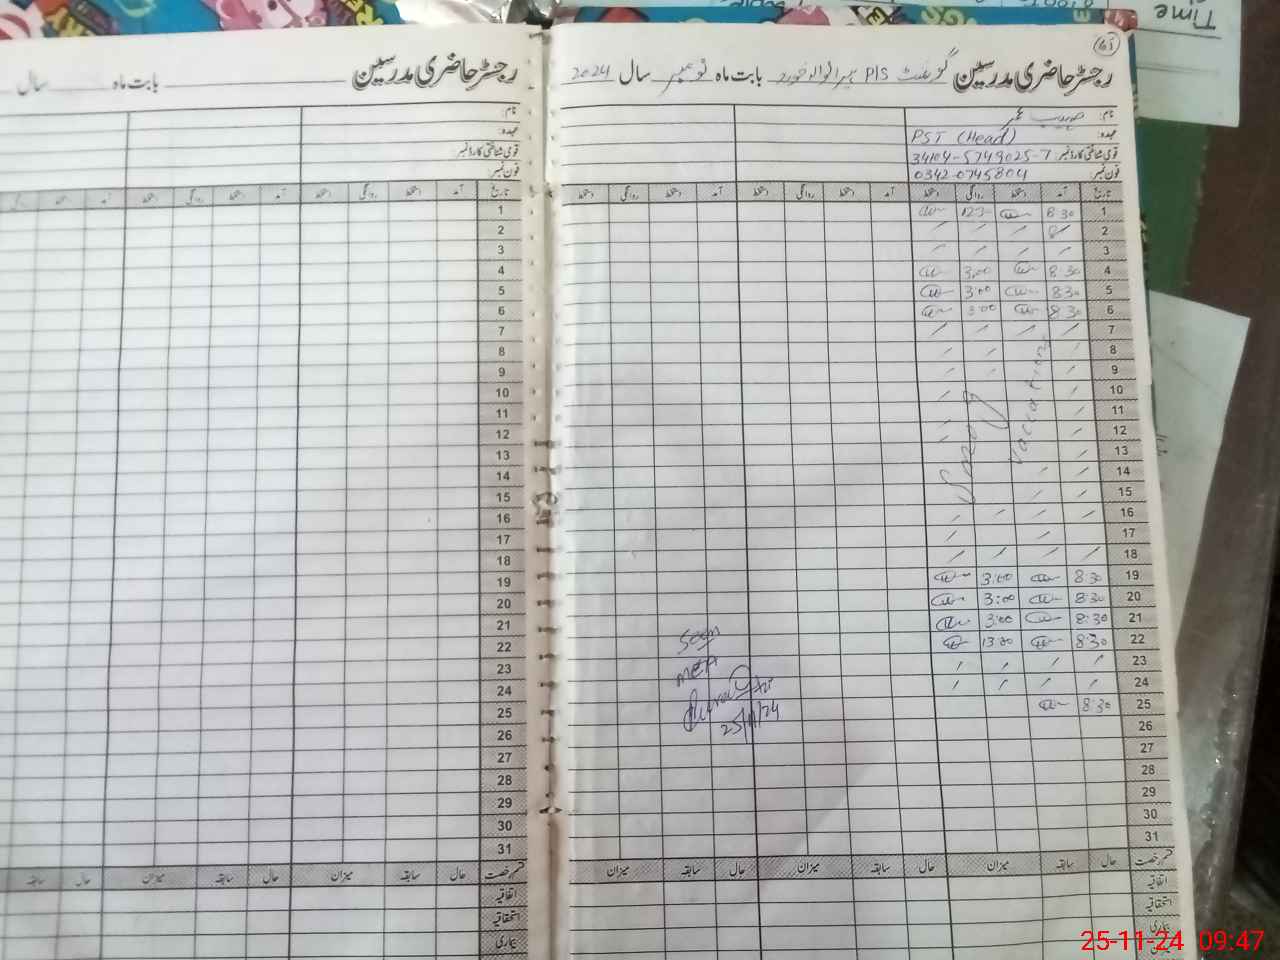 Time
رجسٹر حاضری مدرسین گورنمنٹ P/S بابت ماہ نومبر سال 2024
61
نام:
عہدہ: PST (Head)
قومی شناختی کارڈ نمبر: 34104-5749025-7
فون نمبر: 0342-0745804
تاریخ آمد دستخط روانگی دستخط آمد دستخط روانگی دستخط
1 8:30 12:30
2
3
4 8:30 3:00
5 8:30 3:00
6 8:30 3:00
7
8
9
10
11
12
13
14
15
16
17
18
Smog Vaccation
19 8:30 3:00
20 8:30 3:00
21 8:30 3:00
22 8:30 13:00
23
24
25 8:30
26
27
28
29
30
31
Seen
MEA
25/11/24
قسم رخصت حال سابقہ میزان حال سابقہ میزان حال سابقہ میزان
اتفاقیہ
استحقاقیہ
بیماری
رجسٹر حاضری مدرسین بابت ماہ سال
نام:
عہدہ:
قومی شناختی کارڈ نمبر:
فون نمبر:
تاریخ آمد دستخط روانگی دستخط آمد دستخط روانگی دستخط آمد دستخط روانگی
1
2
3
4
5
6
7
8
9
10
11
12
13
14
15
16
17
18
19
20
21
22
23
24
25
26
27
28
29
30
31
قسم رخصت حال سابقہ میزان حال سابقہ میزان حال سابقہ
اتفاقیہ
استحقاقیہ
بیماری
25-11-24 09:47